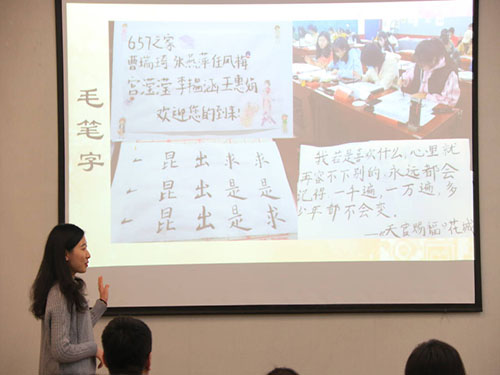 毛笔字
657之家
曹瑞琦 张燕萍
宫滢滢 李楹涵
欢迎您的到来!
一 昆 出 求 求
一 昆 出 是 是
一 昆 出 是 求
我若是喜欢什么,心里就
再容不下别的,永远都会
记得一千遍,一万遍,多
少年都不会变.
——《天官赐福》花城